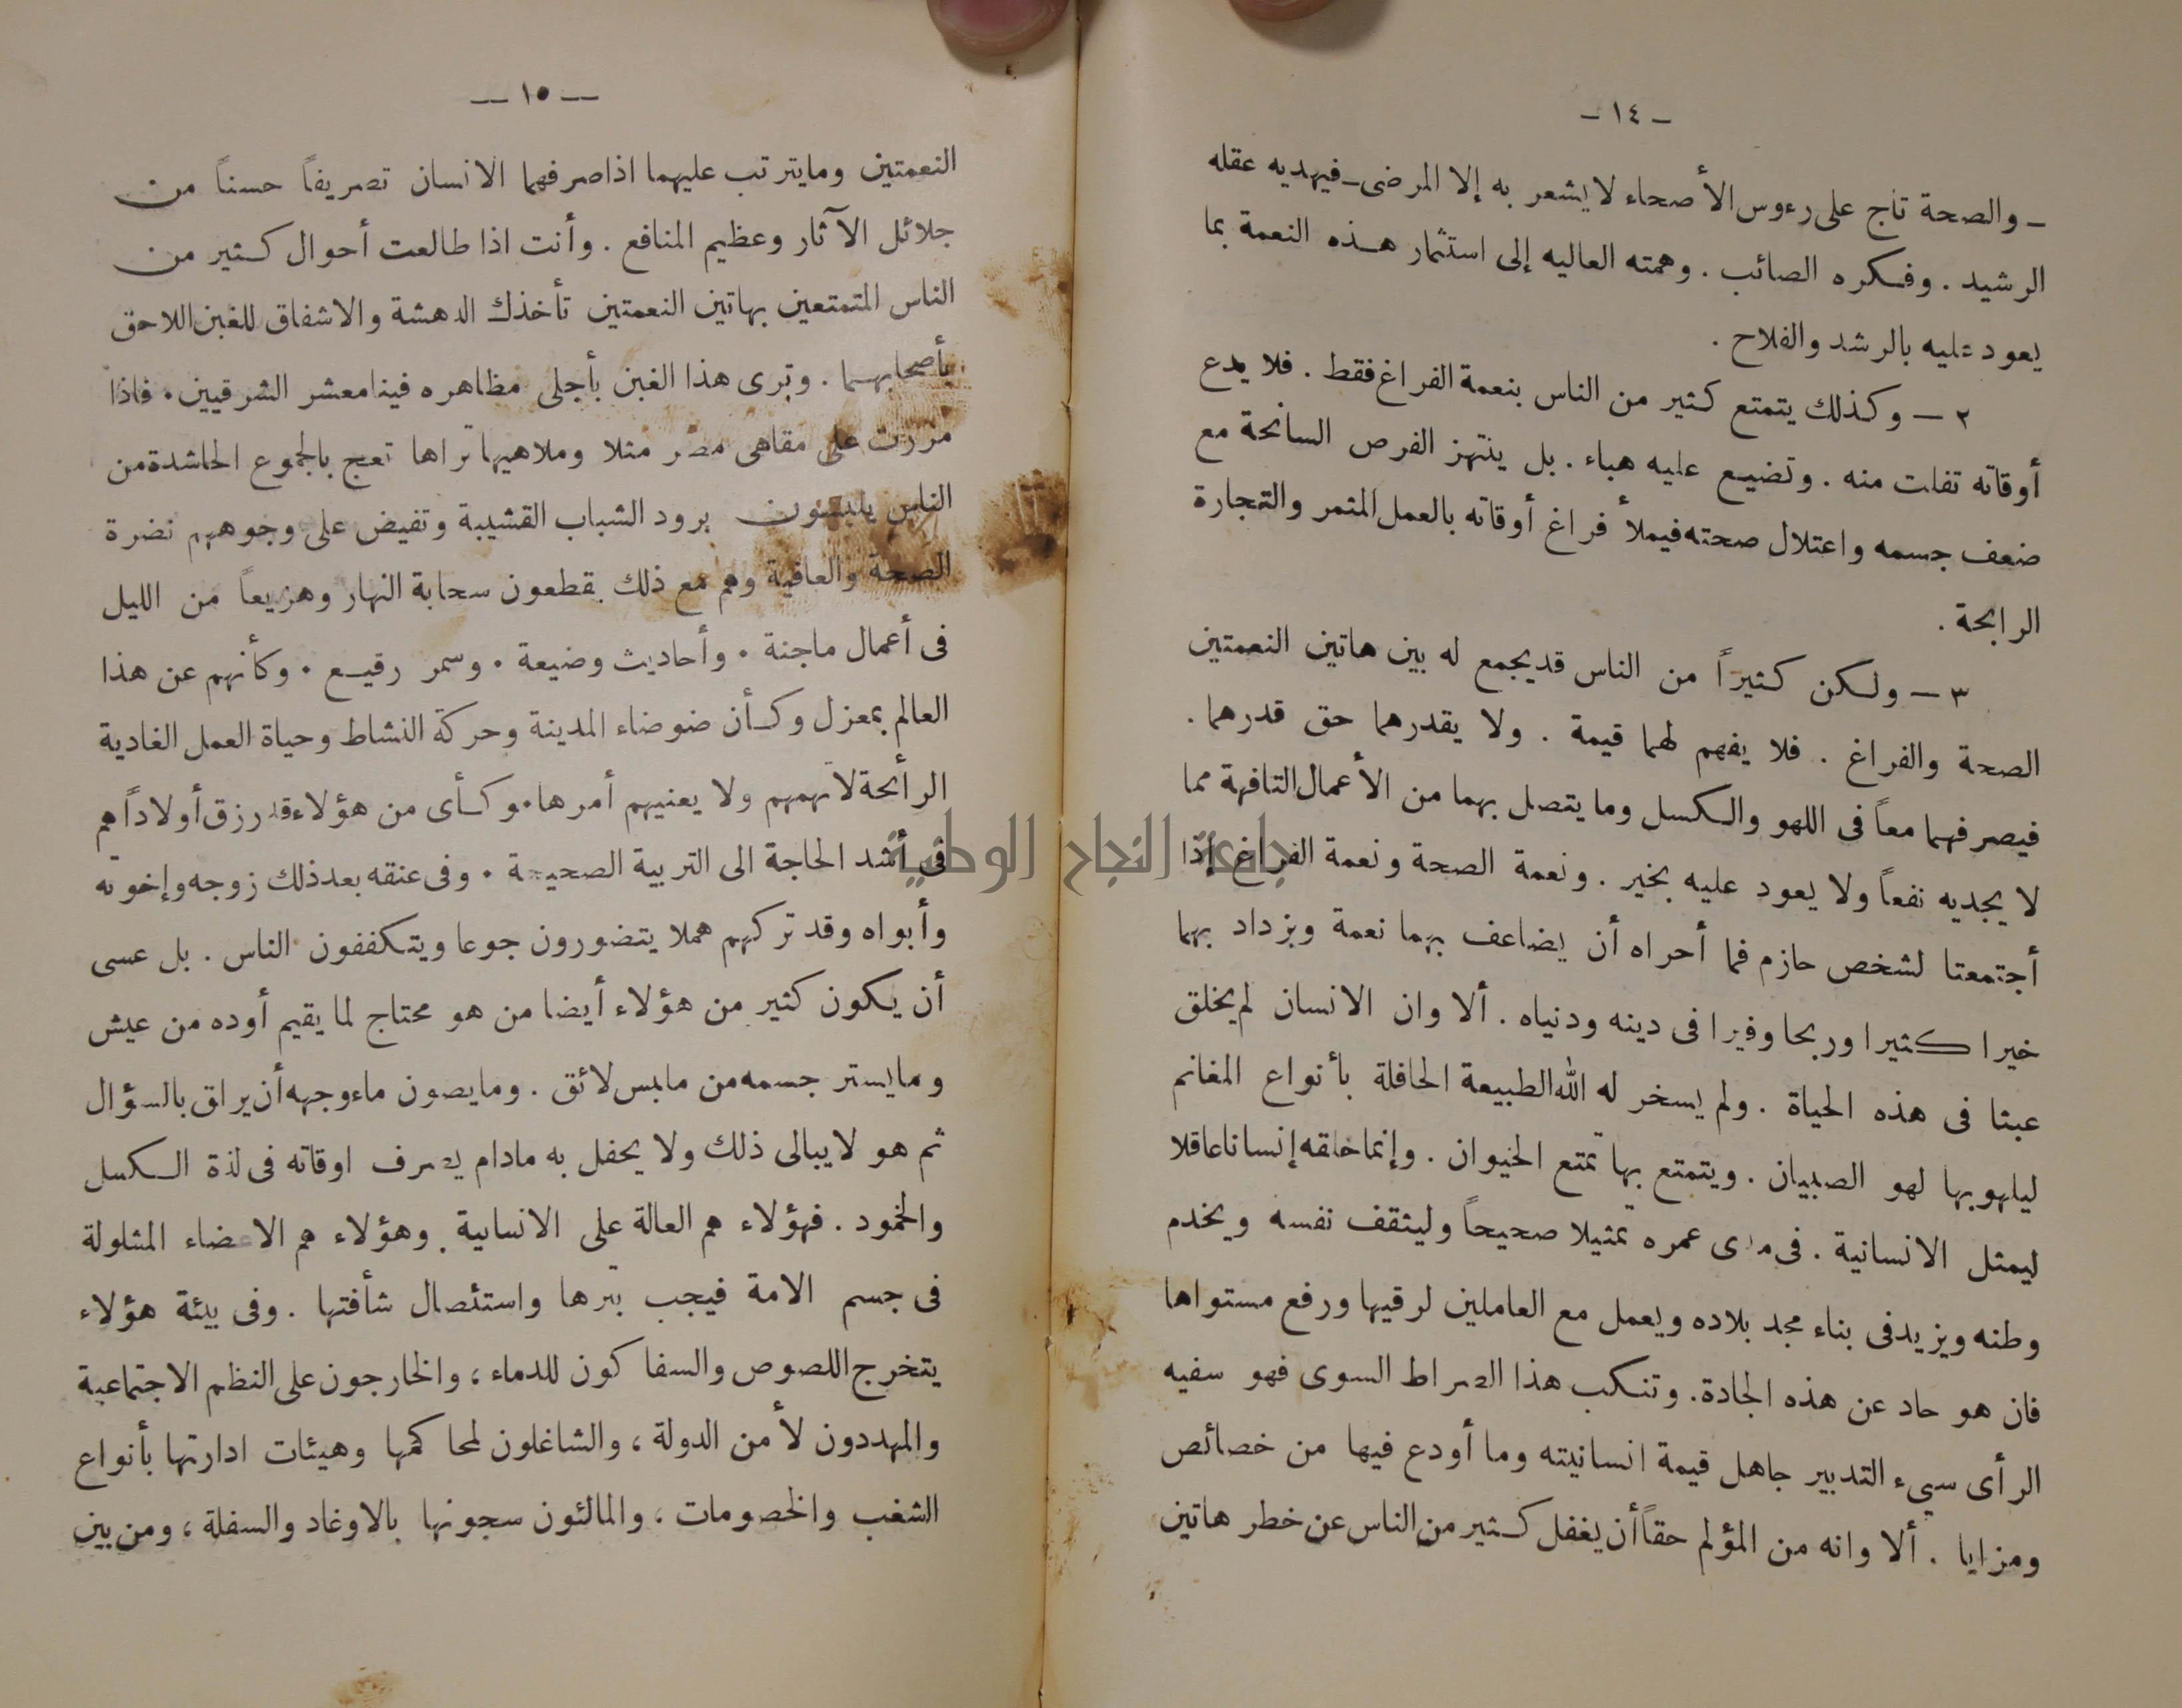 - ١٤ -
- والصحة تاج على رءوس الأصحاء لا يشعر به إلا المرضى - فيهديه عقله
الرشيد . وفكره الصائب . وهمته العاليه إلى استثمار هذه النعمة بما
يعود عليه بالرشد والفلاح .
٢ - وكذلك يتمتع كثير من الناس بنعمة الفراغ فقط . فلا يدع
أوقاته تفلت منه . وتضيع عليه هباء . بل ينتهز الفرص السانحة مع
ضعف جسمه واعتلال صحته فيملأ فراغ أوقاته بالعمل المثمر والتجارة
الرابحة .
٣ - ولكن كثيراً من الناس قد يجمع له بين هاتين النعمتين
الصحة والفراغ . فلا يفهم لهما قيمة . ولا يقدرهما حق قدرهما .
فيصرفهما معاً فى اللهو والكسل وما يتصل بهما من الأعمال التافهة مما
لا يجديه نفعاً ولا يعود عليه بخير . ونعمة الصحة ونعمة الفراغ إذا
أجتمعتا لشخص حازم فما أحراه أن يضاعف بهما نعمة ويزداد بهما
خيرا كثيرا وربحا وفيرا فى دينه ودنياه . ألا وان الانسان لم يخلق
عبثا فى هذه الحياة . ولم يسخر له الله الطبيعة الحافلة بأنواع المغانم
ليلهو بها لهو الصبيان . ويتمتع بها تمتع الحيوان . وإنما خلقه إنسانا عاقلا
ليمثل الانسانية . فى مدى عمره تمثيلا صحيحاً وليثقف نفسه ويخدم
وطنه ويزيد فى بناء مجد بلاده ويعمل مع العاملين لرقيها ورفع مستواها
فان هو حاد عن هذه الجادة . وتنكب هذا الصراط السوى فهو سفيه
الرأى سيء التدبير جاهل قيمة انسانيته وما أودع فيها من خصائص
ومزايا . ألا وانه من المؤلم حقاً أن يغفل كثير من الناس عن خطر هاتين
— ١٥ —
النعمتين وما يترتب عليهما اذا صرفهما الانسان تصريفاً حسناً من
جلائل الآثار وعظيم المنافع . وأنت اذا طالعت أحوال كثير من
الناس المتمتعين بهاتين النعمتين تأخذك الدهشة والاشفاق للغبن اللاحق
بأصحابهما . وترى هذا الغبن بأجلى مظاهره فينا معشر الشرقيين . فاذا
مررت على مقاهى مصر مثلا وملاهيها تراها تعج بالجموع الحاشدة من
الناس يلبسون برود الشباب القشيبة وتفيض على وجوههم نضرة
الصحة والعافية وهم مع ذلك يقطعون سحابة النهار وهزيعاً من الليل
فى أعمال ماجنة . وأحاديث وضيعة . وسمر رقيع . وكأنهم عن هذا
العالم بمعزل وكأن ضوضاء المدينة وحركة النشاط وحياة العمل الغادية
الرأئحة لا تهمهم ولا يعنيهم أمرها . وكأى من هؤلاء قد رزق أولاداً هم
فى أشد الحاجة الى التربية الصحيحة . وفى عنقه بعد ذلك زوجه وإخوته
وأبواه وقد تركهم هملا يتضورون جوعا ويتكففون الناس . بل عسى
أن يكون كثير من هؤلاء أيضا من هو محتاج لما يقيم أوده من عيش
وما يستر جسمه من ملبس لائق . وما يصون ماء وجهه أن يراق بالسؤال
ثم هو لا يبالى ذلك ولا يحفل به مادام يصرف اوقاته فى لذة الكسل
والخمود . فهؤلاء هم العالة على الانسانية . وهؤلاء هم الاعضاء المشلولة
فى جسم الامة فيجب بترها واستئصال شأفتها . وفى بيئة هؤلاء
يتخرج اللصوص والسفاكون للدماء ، والخارجون على النظم الاجتماعية
والمهددون لأمن الدولة ، والشاغلون لمحاكمها وهيئات ادارتها بأنواع
الشغب والخصومات ، والمالئون سجونها بالاوغاد والسفلة ، ومن بين
جامعة النجاح الوطنية